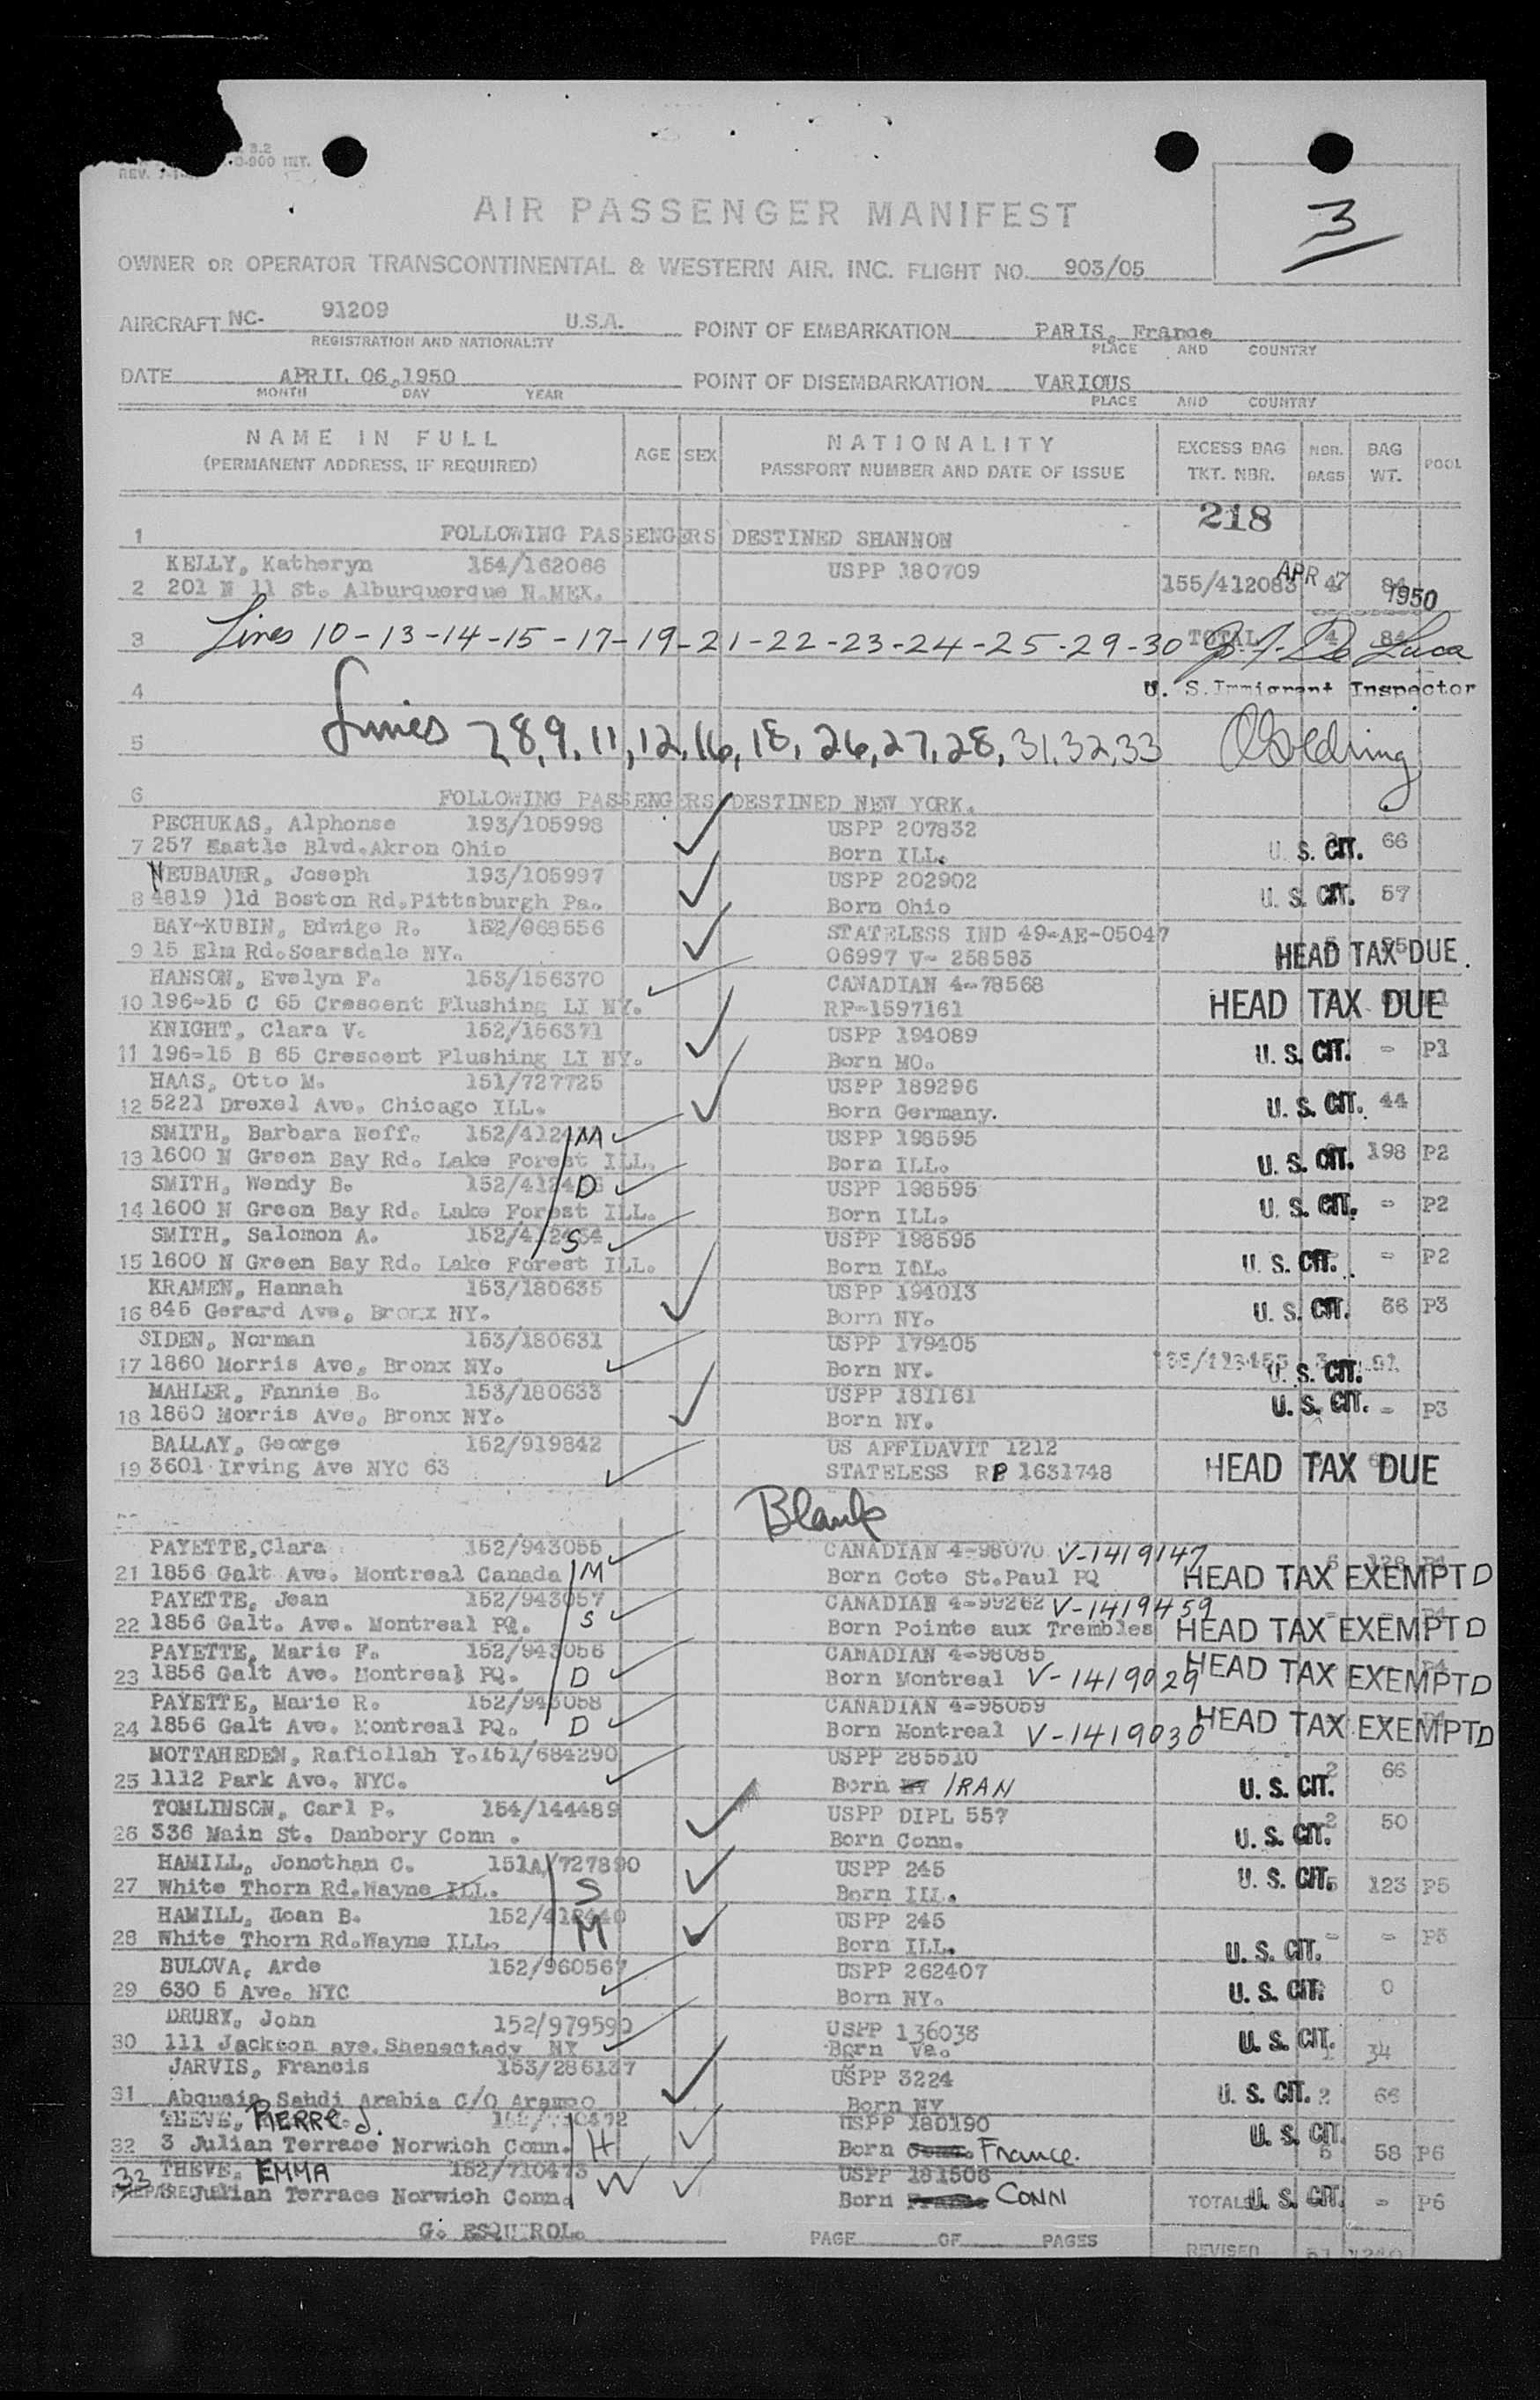 3.2
0-900 INT.
REV.
AIR PASSENGER MANIFEST
3
OWNER OR OPERATOR TRANSCONTINENTAL & WESTERN AIR. INC. FLIGHT NO. 903/05
AIRCRAFT NC- 91209 U.S.A. POINT OF EMBARKATION PARIS, France
REGISTRATION AND NATIONALITY PLACE AND COUNTRY
DATE APRIL 06,1950 POINT OF DISEMBARKATION VARIOUS
MONTH DAY YEAR PLACE AND COUNTRY
NAME IN FULL AGE SEX NATIONALITY EXCESS BAG NBR. BAG POOL
(PERMANENT ADDRESS, IF REQUIRED) PASSPORT NUMBER AND DATE OF ISSUE TKT. NBR. BAGS WT.
218
1 FOLLOWING PASSENGERS DESTINED SHANNON
KELLY, Katheryn 154/162066 USPP 180709
2 201 N 11 St. Alburquerque N.MEX. 155/412083 4 84
APR 7 1950
3 Lines 10-13-14-15-17-19-21-22-23-24-25-29-30 TOTAL 4 84 De Luca
4 U. S. Immigrant Inspector
5 Lines 7,8,9,11,12,16,18,26,27,28,31,32,33
6 FOLLOWING PASSENGERS DESTINED NEW YORK.
PECHUKAS, Alphonse 193/105998 USPP 207832
7 257 Eastle Blvd.Akron Ohio Born ILL. U. S. CIT. 66
NEUBAUER, Joseph 193/105997 USPP 202902
8 4819 )ld Boston Rd,Pittsburgh Pa. Born Ohio U. S. CIT. 57
BAY-KUBIN, Edwige R. 152/068556 STATELESS IND 49-AE-05047
9 15 Elm Rd.Scarsdale NY. 06997 V- 258583 HEAD TAX DUE.
HANSON, Evelyn F. 153/156370 CANADIAN 4-78568
10 196-15 C 65 Crescent Flushing LI NY. RP-1597161 HEAD TAX DUE
KNIGHT, Clara V. 152/156371 USPP 194089
11 196-15 B 65 Crescent Flushing LI NY. Born MO. U. S. CIT. - P1
HAAS, Otto M. 151/727725 USPP 189296
12 5221 Drexel Ave. Chicago ILL. Born Germany. U. S. CIT. 44
SMITH, Barbara Neff. 152/412 M USPP 198595
13 1600 N Green Bay Rd. Lake Forest ILL. Born ILL. U. S. CIT. 198 P2
SMITH, Wendy B. 152/412 D USPP 198595
14 1600 N Green Bay Rd. Lake Forest ILL. Born ILL. U. S. CIT. - P2
SMITH, Salomon A. 152/412 S USPP 198595
15 1600 N Green Bay Rd. Lake Forest ILL. Born ILL. U. S. CIT. - P2
KRAMEN, Hannah 153/180635 USPP 194013
16 845 Gerard Ave, Bronx NY. Born NY. U. S. CIT. 66 P3
SIDEN, Norman 153/180631 USPP 179405
17 1860 Morris Ave, Bronx NY. Born NY. U. S. CIT. 91
MAHLER, Fannie B. 153/180633 USPP 181161
18 1860 Morris Ave, Bronx NY. Born NY. U. S. CIT. - P3
BALLAY, George 152/919842 US AFFIDAVIT 1212
19 3601 Irving Ave NYC 63 STATELESS RP 1631748 HEAD TAX DUE
Blank
PAYETTE,Clara 152/943055 CANADIAN 4-98070 V-1419147
21 1856 Galt Ave. Montreal Canada M Born Cote St.Paul PQ HEAD TAX EXEMPTD
PAYETTE, Jean 152/943057 CANADIAN 4-99262 V-1419459
22 1856 Galt. Ave. Montreal PQ. S Born Pointe aux Trembles HEAD TAX EXEMPTD
PAYETTE, Marie F. 152/943056 CANADIAN 4-98085
23 1856 Galt Ave. Montreal PQ. D Born Montreal V-1419029 HEAD TAX EXEMPTD
PAYETTE, Marie R. 152/943058 CANADIAN 4-98059
24 1856 Galt Ave. Montreal PQ. D Born Montreal V-1419030 HEAD TAX EXEMPTD
MOTTAHEDEN, Rafiollah Y.151/684290 USPP 285510
25 1112 Park Ave. NYC. Born IRAN U. S. CIT. 2 66
TOMLINSON, Carl P. 154/144489 USPP DIPL 557
26 336 Main St. Danbory Conn . Born Conn. U. S. CIT. 2 50
HAMILL, Jonothan C. 151A/727890 USPP 245
27 White Thorn Rd.Wayne ILL. S Born ILL. U. S. CIT. 5 123 P5
HAMILL, Joan B. 152/412440 USPP 245
28 White Thorn Rd.Wayne ILL. M Born ILL. U. S. CIT. - - P5
BULOVA, Arde 152/960567 USPP 262407
29 630 5 Ave. NYC Born NY. U. S. CIT. 0
DRURY, John 152/979590 USPP 136038
30 111 Jackson ave.Shenectady NY Born Va. U. S. CIT. 34
JARVIS, Francis 153/286137 USPP 3224
31 Abquaie Sahdi Arabia C/O Aramco Born NY U. S. CIT. 2 66
THEVE, PIERRE J. USPP 180190
32 3 Julian Terrace Norwich Conn. H Born France. U. S. CIT. 5 58 P6
33 THEVE, EMMA 152/710473 W USPP 181508
3 Julian Terrace Norwich Conn. Born CONN TOTALS U. S. CIT. - P6
G. ESQUIROL.
PAGE OF PAGES REVISED 51 1240